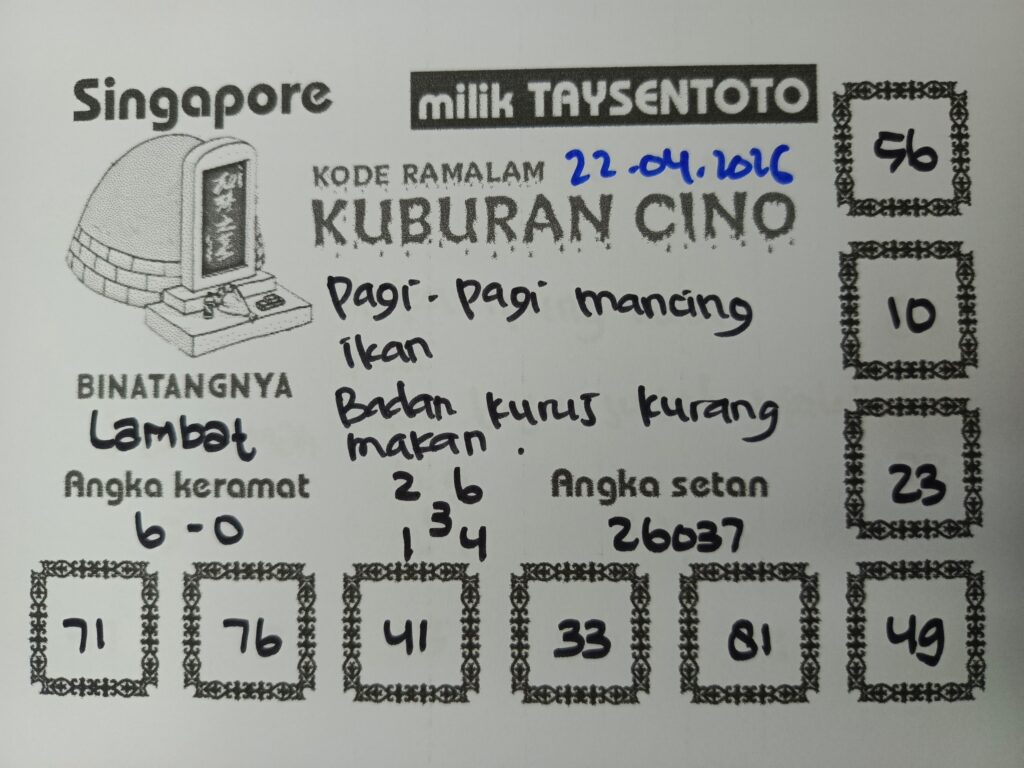 Singapore
milik TAYSENTOTO
KODE RAMALAM 22.04.2026
KUBURAN CINO
Pagi-pagi mancing
ikan
Badan kurus kurang
makan.
BINATANGNYA
Lambat
Angka keramat
6-0
2 6
3
1 4
Angka setan
26037
56
10
23
71 76 41 33 81 49